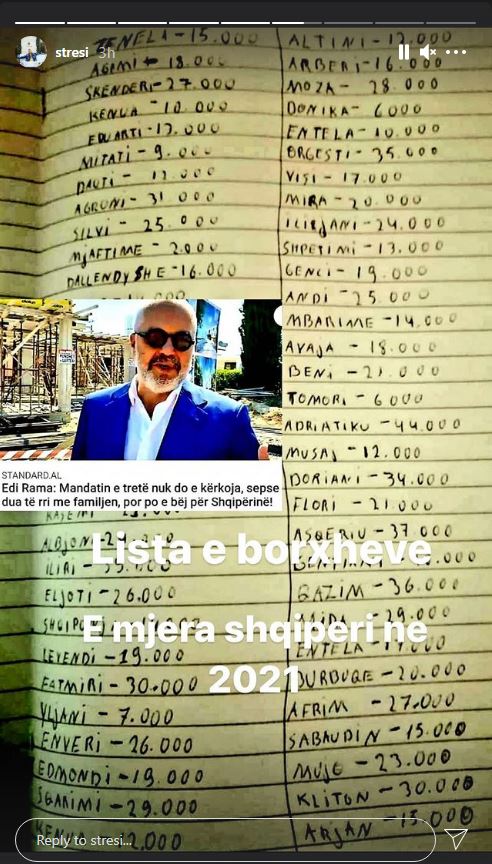 stresi 3h
ZENELA-15.000
AGIMI - 18.000
SKENDERI-27.000
KENUA - 10.000
EDUARTI-13.000
MITATI- 9.000
DAUTI - 12.000
AGRONI- 31 000
SILVI - 25.000
MJAFTIME - 2.000
DALLENDYSHE-16.000
STANDARD.AL
Edi Rama: Mandatin e tretë nuk do e kërkoja, sepse
dua të rri me familjen, por po e bëj për Shqipërinë!
ALBJON
ILIRI
ELJOTI -26.000
LEVENDI-19.000
FATMIRI- 30.000
YLJANI - 7.000
ENVERI -26.000
EDMONDI-19.000
SGARIMI -29.000
KENUA -12,000
ALTINI-12.000
ARBERI-16.000
MOZA - 28.000
DONIKA- 6000
ENTELA-10.000
ORGESTI- 35.000
VISI - 17.000
MIRA - 20.000
ILIRJANI-24.000
SHPETIMI -13.000
GENCI- 19.000
ANDI -25.000
MBARIME -14.000
AVAJA - 18.000
BENI - 21.000
TOMORI - 6 000
ADRIATIKU -44.000
MUSAJ - 12.000
DORIANI -34.000
FLORI - 21.000
ASQERIU -37 000
GAZIM -36.000
AIDA -29.000
ENTELA -17.000
BURBUQE -20.000
AFRIM -27.000
SABAUDIN -15.000
MUJO -23.000
KLITON -30.000
ARJAN -15.000
Lista e borxheve
E mjera shqiperi ne
2021
Reply to stresi...